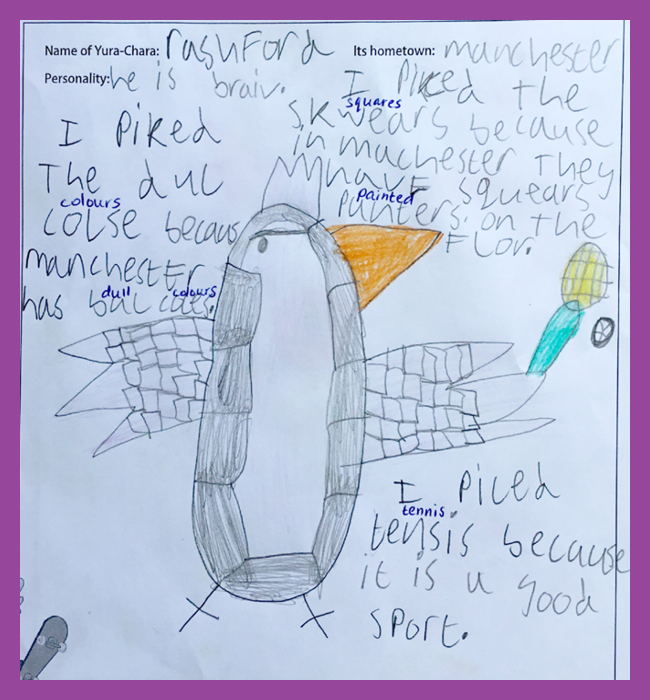 Name of Yura-Chara: rashford Its hometown: manchester
Personality: he is braiv.
I Piked
The dul
colours
colse becaus
manchester
dull colours
has bul coles.
I Piked the
squares
skwears because
in machester They
have squears
painted
punters on the
Flor.
I Piced
tennis
tensis because
it is a good
sport.